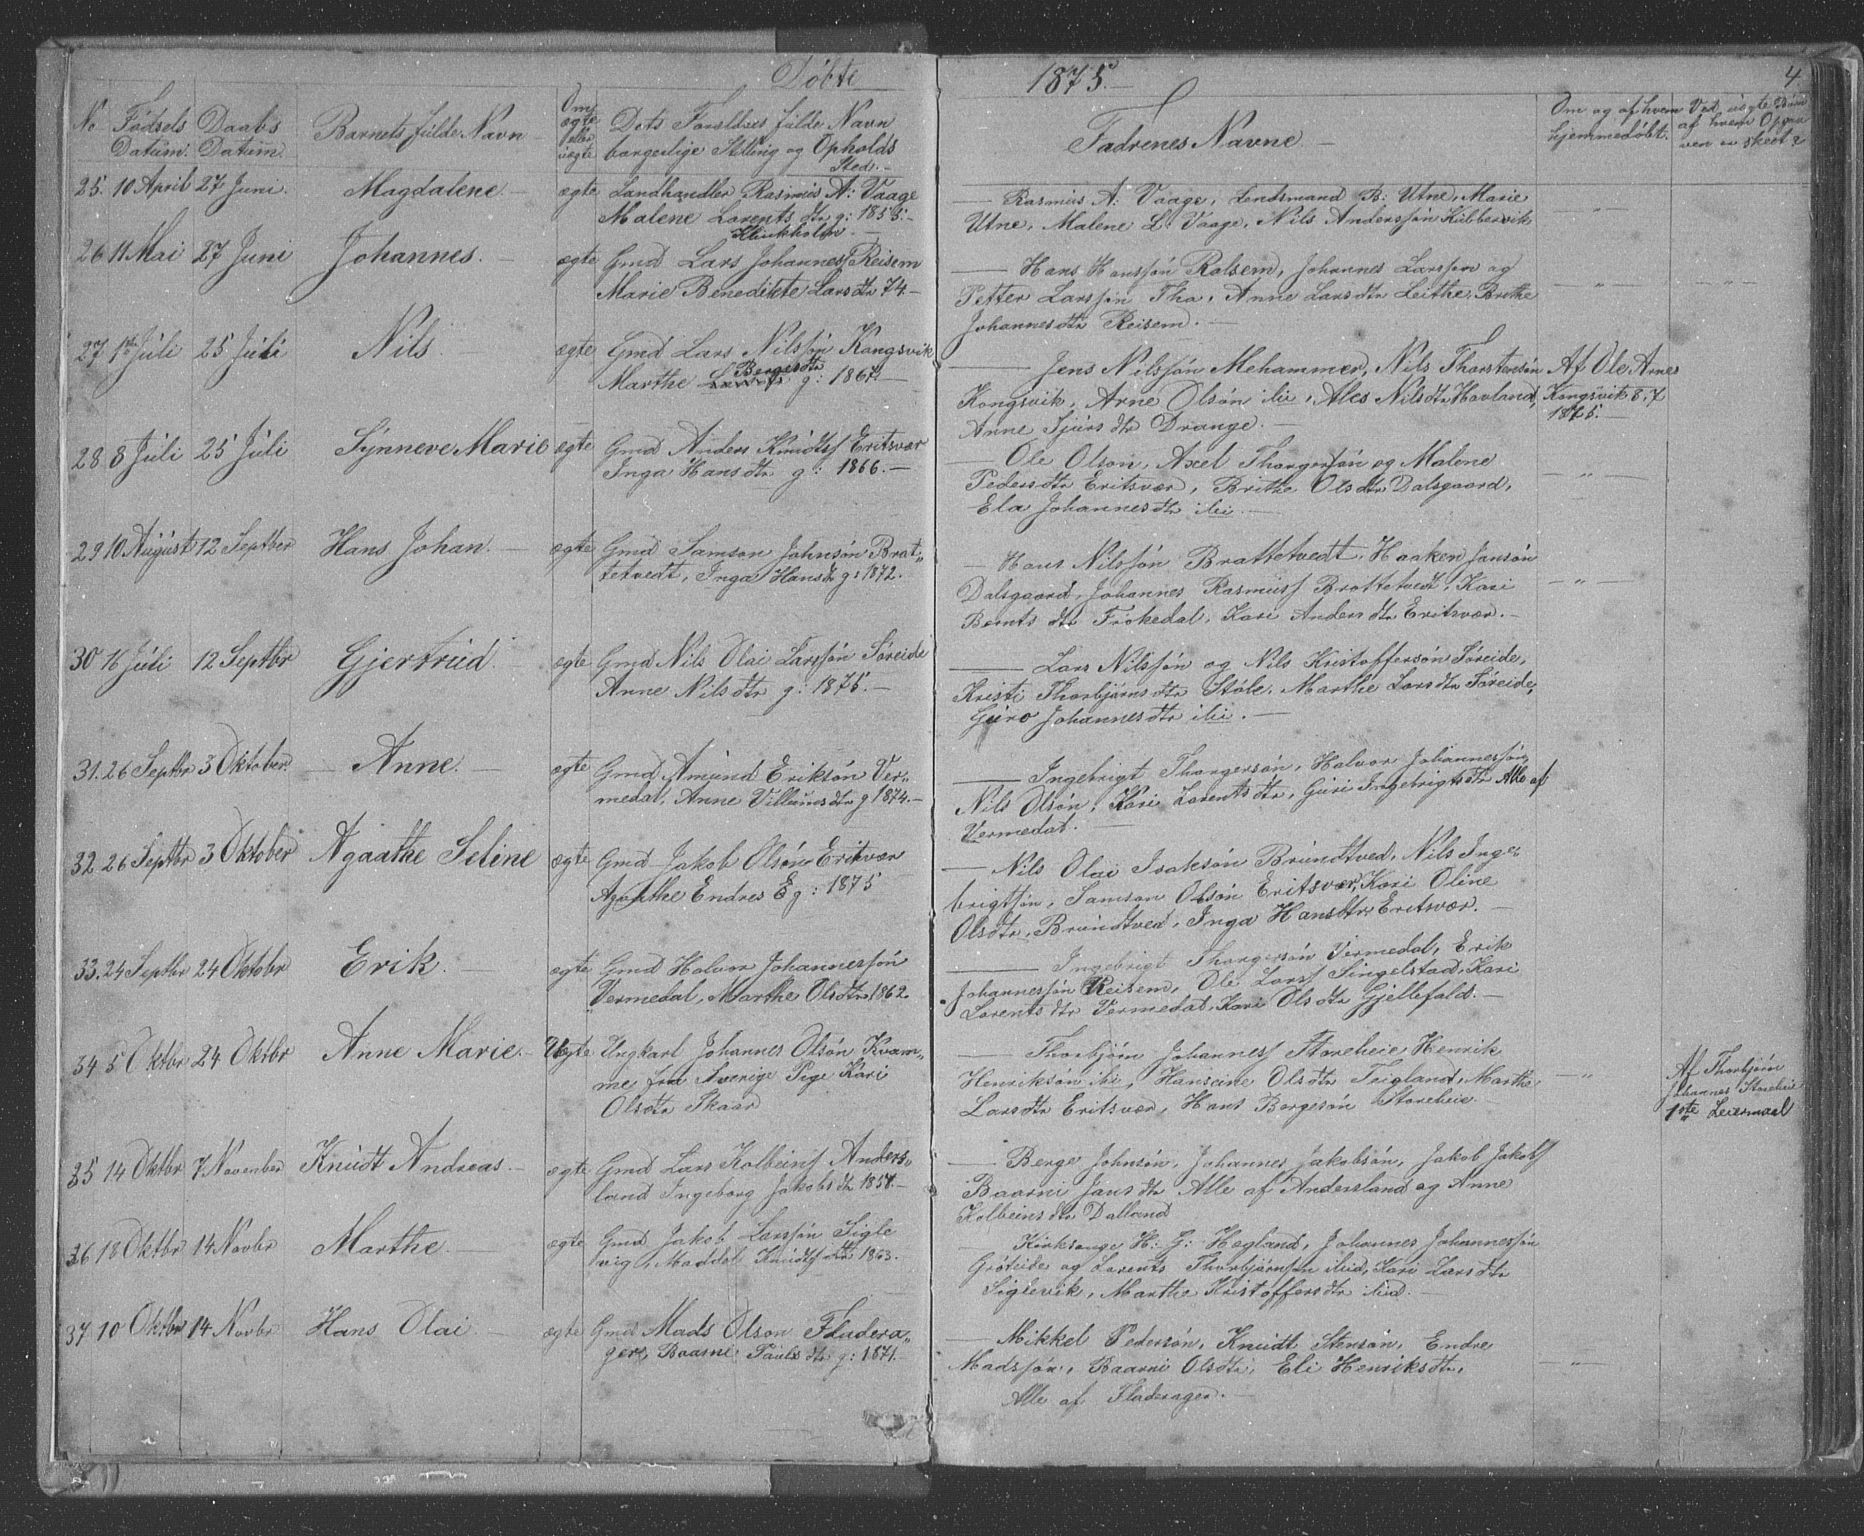 Døbte 1875. 4
No Fødsels Datum. Daabs Datum. Barnets fulde Navn Om ægte eller uægte Dets Forældres fulde Navn borgerlige Stilling og Opholds Sted. Faderenes Navne. Om og af hvem hjemmedøbt. Ved uægte Børn af hvem Opgaven er skeet?
25. 10 April 27 Juni. Magdalene. ægte Landhandler Rasmus A: Vaage
Malene Larents dtr g: 1855.
Klinkholm.
Rasmus A: Vaage, Lendsmand B: Utne, Marie
Utne, Malene L: Vaage, Nils Anderssøn Kilbervik
26 11 Mai 27 Juni Johannes. ægte Gmd Lars Johannesf Reisem
Marie Benedikte Lars dtr 74.
Hans Hanssøn Rolsem, Johannes Larssøn og
Petter Larssøn Tho, Anne Lars dtr Leithe, Brithe
Johannes dtr Reisem.
27 1ste Juli 25 Juli Nils ægte Gmd Lars Nilssøn Kongsvik
Marthe Berges dtr g: 1867
Jens Nilssøn Mehammer, Nils Thorstensøn
Kongsvik, Arne Olsøn ibi, Ales Nils dtr Hovland,
Anne Sjurs dtr Drange.
Af Ole Arnes
Kongsvik 8.7
1875.
28 8 Juli 25 Juli Synneve Marie ægte Gmd Anders Knudsf Eritsvær
Inga Hans dtr g: 1866.
Ole Olson, Axel Thorgersøn og Malene
Peders dtr Eritsvær, Brithe Ols dtr Dalsgaard,
Ela Johannes dtr ibi.
29 10 August 12 Septbr Hans Johan. ægte Gmd Samson Johnsøn Brat„
tetvedt, Inga Hansdr g: 1872.
Hans Nilssøn Brattetvedt, Haaken Jansøn
Dalsgaard, Johannes Rasmusf Brattetvedt, Kari
Bernts dtr Friskedal, Kari Anders dtr Eritsvær.
30 16 Juli 12 Septbr Gjertrud. ægte Gmd Nils Olai Larssøn Søreide
Anne Nils dtr g: 1875.
Lars Nilssøn og Nils Kristoffersøn Søreide,
Kristi Thorbjørns dtr Støle, Marthe Lars dtr Søreide,
Guro Johannes dtr ibi.
31. 26 Septbr 3 Oktober. Anne. ægte Gmd Amund Eriksøn Ver„
medal, Anne Villums dtr g 1874.
Ingebrigt Thorgersøn, Halvor Johannessøn,
Nils Olsøn, Kari Larents dtr, Guri Ingebrigts dtr Alle af
Vermedal.
32 26 Septbr 3 Oktober Agaathe Seline ægte Gmd Jakob Olsøn Eritvær
Agathe Endres E g: 1875
Nils Olai Isaksøn Brundtved, Nils Inge„
brigtsøn, Samson Olsøn Eritsvær, Kari Oline
Olsdtr, Brundtved, Inga Hansdtr Eritsvær.
33. 24 Septbr 24 Oktobr Erik. ægte Gmd Halvor Johannessøn
Vermedal, Marthe Olsdtr 1862
Ingebrigt Thorgersøn Vermedal, Erik
Johannessøn Reisem, Ole Larsf Singelstad, Kari
Larents dtr Vermedal, Kari Ols dtr Gjellefald.
34 5 Oktbr 24 Oktbr Anne Marie. Uægte Ungkarl Johannes Olsøn Kvam„
me fra Sverige Pige Kari
Olsdtr Skaar
Thorbjørn Johannesf Storeheie Henrik
Henriksøn ibi, Hansine Olsdtr Teigland, Marthe
Larsdtr Eritsvær, Hans Bergesøn Storeheie
Af Thorbjørn
Johannes Storeheie
1ste Leiermaal
35 14 Oktbr 7 November Knudt Andreas. ægte Gmd Lars Kolbeinsf Anders„
land Ingeborg Jakobs dtr 1858.
Berge Johnsøn, Johannes Jakobsøn, Jakob Jakobsf
Baarni Jans dtr Alle af Andersland og Anne
Kolbeins dtr Dalland
36 18 Oktbr 14 Novbr Marthe ægte Gmd Jakob Larssøn Sigle
vig, Maddel Knudts dtr 1863.
Kirksange H: G: Hegland, Johannes Johannessøn
Grøteide og Larents Thorbjørnsøn ibid, Kari Lars dtr
Siglevik, Marthe Kristoffers dtr ibid.
37 10 Oktbr 14 Novbr Hans Olai ægte Gmd Mads Olson Fludera„
ger, Baarni Pauls dtr g: 1871.
Mikkel Pedersøn, Knudt Stensøn, Endre
Madssøn, Baarni Olsdtr, Eli Henriksdtr,
Alle af Fladerager.